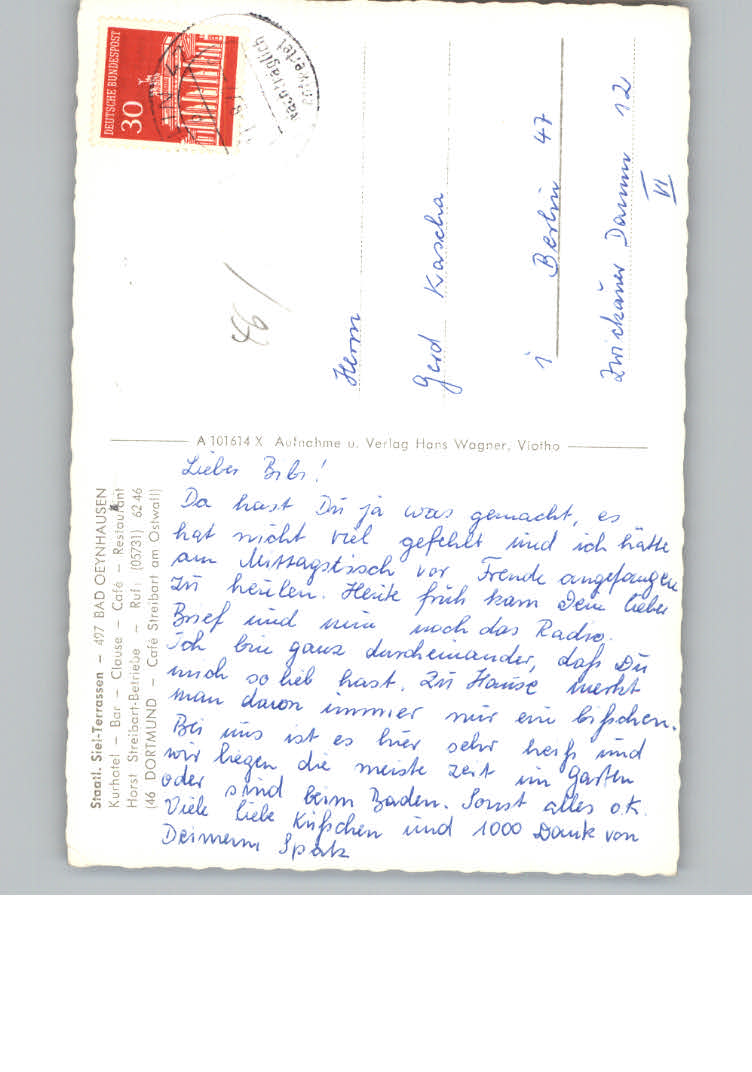 DEUTSCHE BUNDESPOST
30
nachträglich
entwertet
Herrn
Gerd Kascha
1 Berlin 47
Zwickauer Damm 12
VI
46/
A 101614 X Aufnahme u. Verlag Hans Wagner, Vlotho
Staatl. Siel-Terrassen – 497 BAD OEYNHAUSEN
Kurhotel – Bar – Clause – Café – Restaurant
Horst Streibart-Betriebe – Ruf: (05731) 62 46
(46 DORTMUND – Café Streibart am Ostwall)
Lieber Bibi!
Da hast Du ja was gemacht, es
hat nicht viel gefehlt und ich hätte
am Mittagstisch vor Freude angefangen
zu heulen. Heute früh kam Dein lieber
Brief und nun noch das Radio.
Ich bin ganz durcheinander, daß Du
mich so lieb hast. Zu Hause merkt
man davon immer nur ein bißchen.
Bei uns ist es hier sehr heiß und
wir liegen die meiste Zeit im Garten
oder sind beim Baden. Sonst alles o.K.
Viele liebe Küßchen und 1000 Dank von
Deinem Spatz